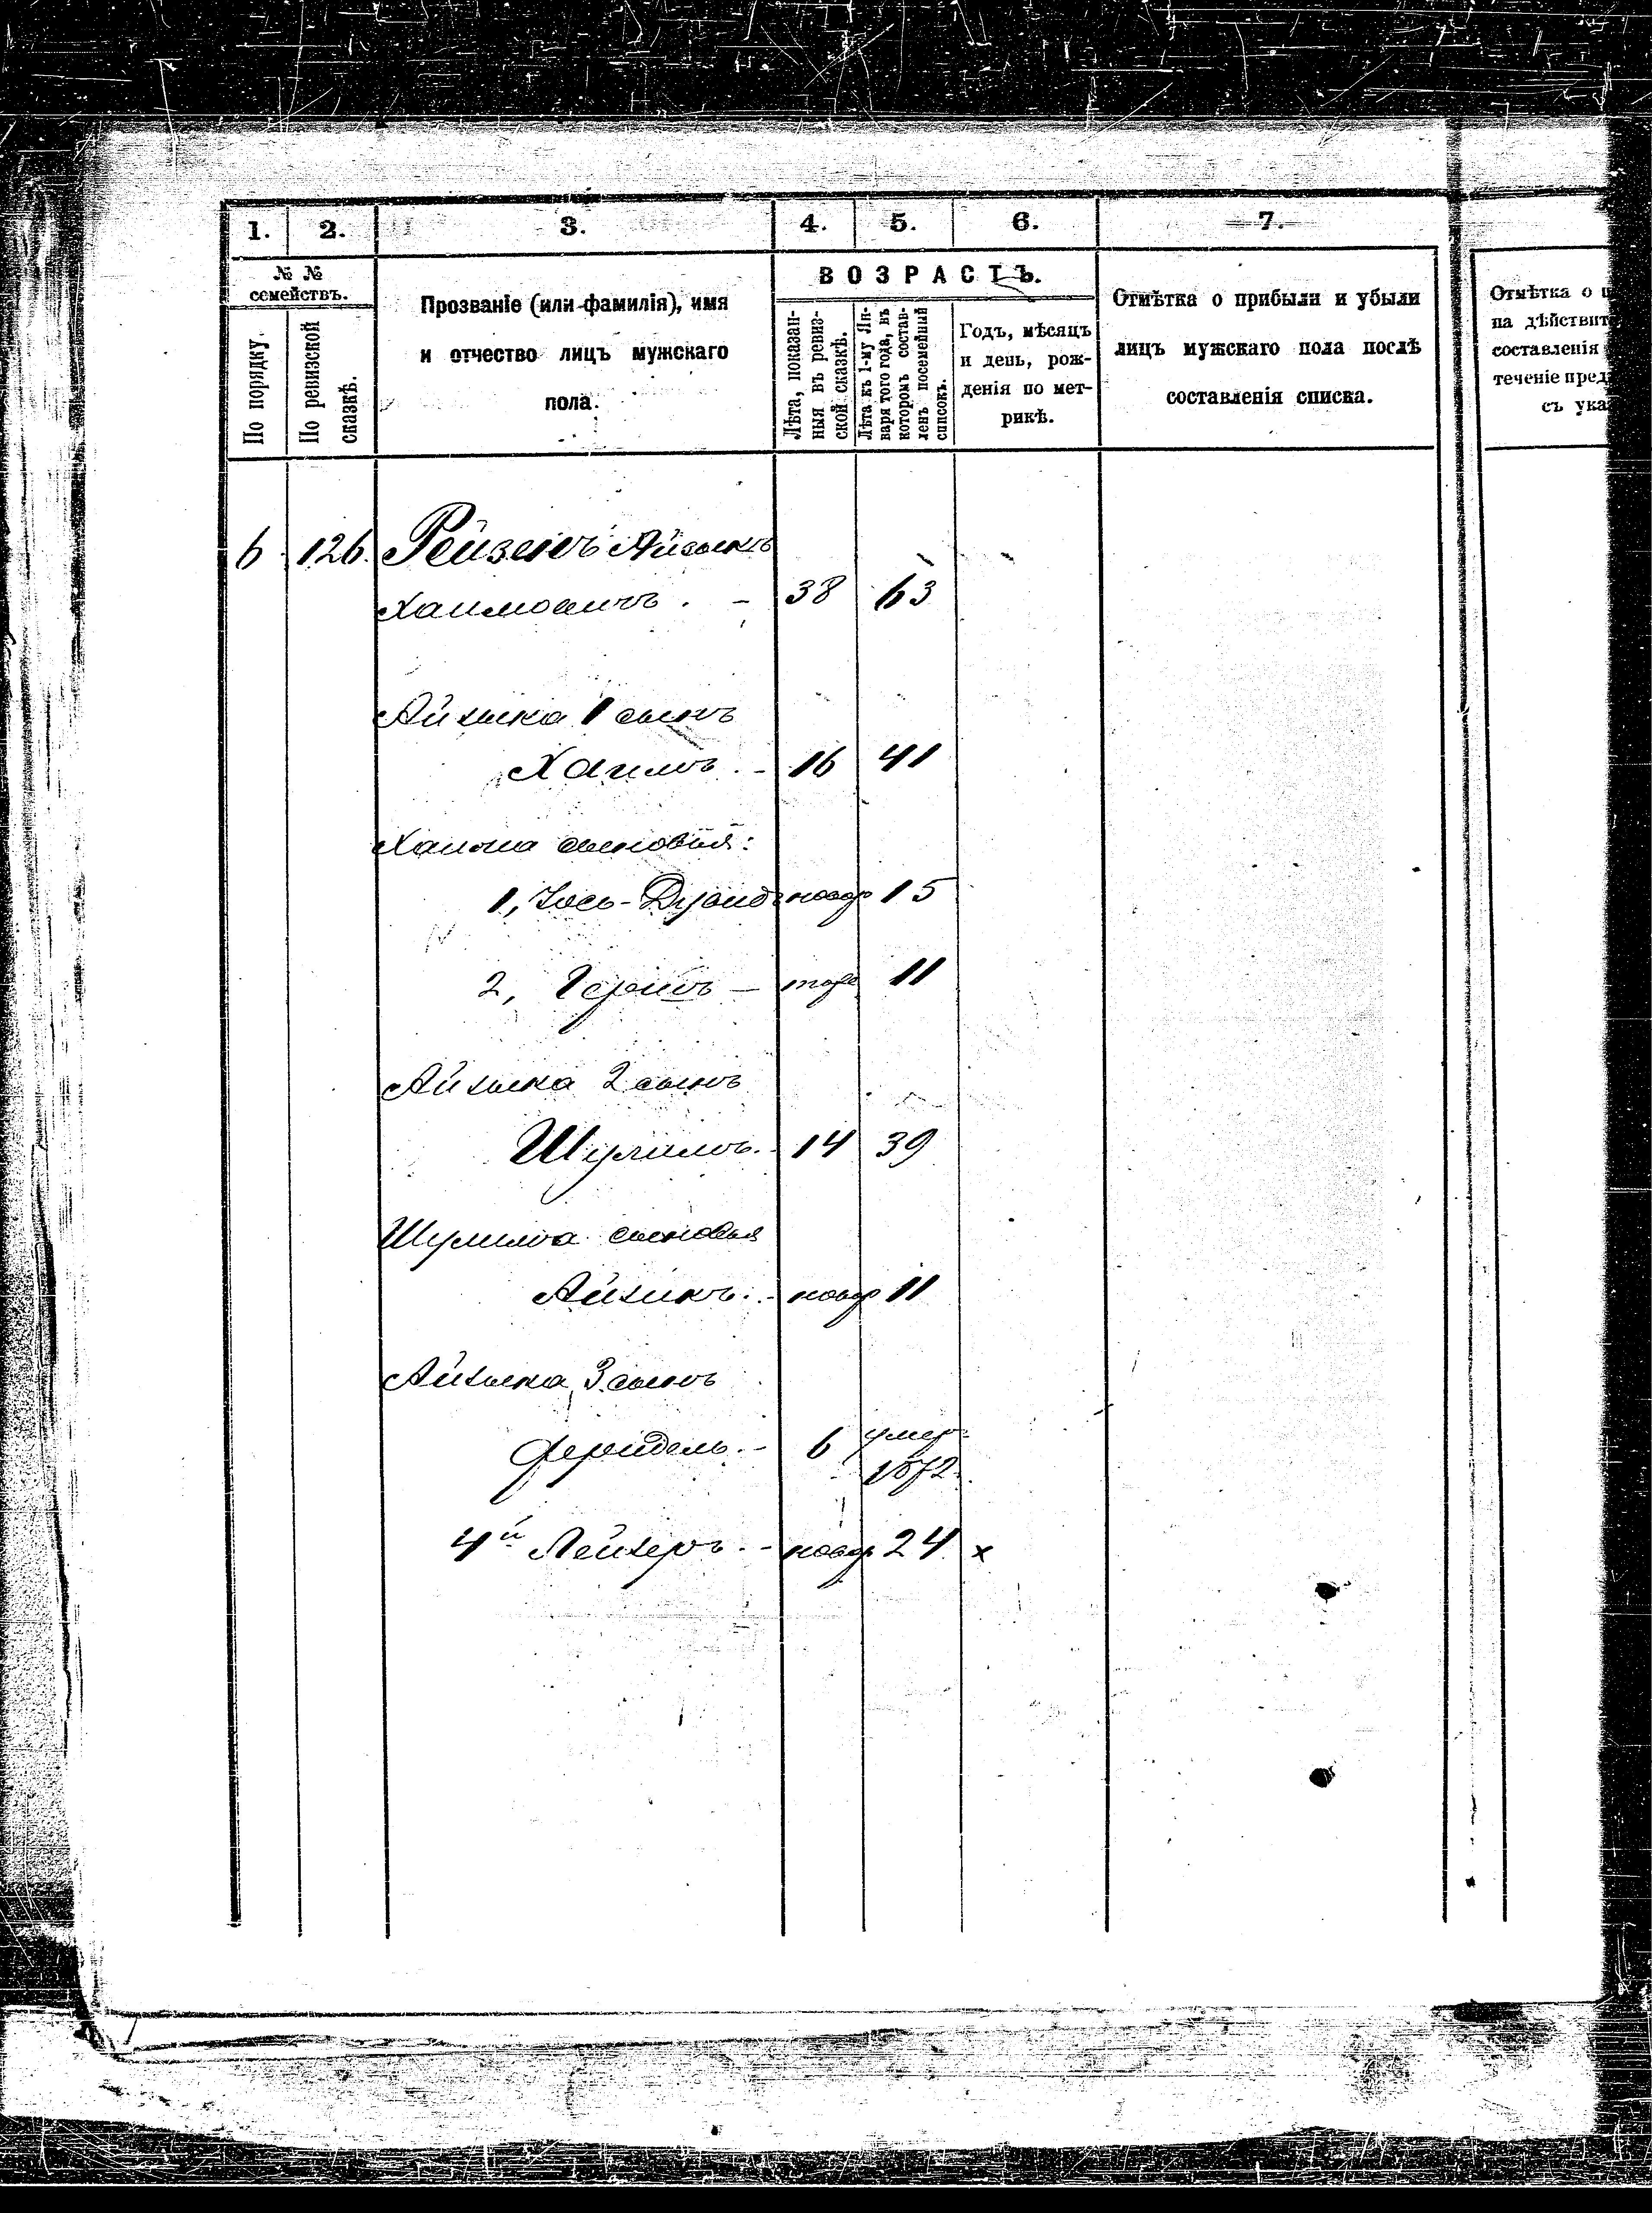 1. 2. 3. 4. 5. 6. 7.
№ №
семействъ.
По порядку
По ревизской
сказкѣ.
Прозваніе (или фамилія), имя
и отчество лицъ мужскаго
пола.
ВОЗРАСТЪ.
Лѣта, показан-
ныя въ ревиз-
ской сказкѣ.
Лѣта къ 1-му Ян-
варя того года, въ
которомъ состав-
ленъ посемейный
списокъ.
Годъ, мѣсяцъ
и день, рож-
денія по мет-
рикѣ.
Отмѣтка о прибыли и убыли
лицъ мужскаго пола послѣ
составленія списка.
Отмѣтка о
на дѣйствит
составленія
теченіе пред
съ ука
6 126 Рейзенъ Айзикъ
Хаимовичъ. - 38 63
Айзика 1 сынъ
Хаимъ. - 16 41
Хаима сыновья:
1, Іось- новор 15
2, Гершъ - тоже 11
Айзика 2 сынъ
Шулимъ. - 14 39
Шулима сыновья
Айзикъ. - новор 11
Айзика 3 сынъ
- 6 умер
1872.
4й Лейзеръ. - новор 24 x